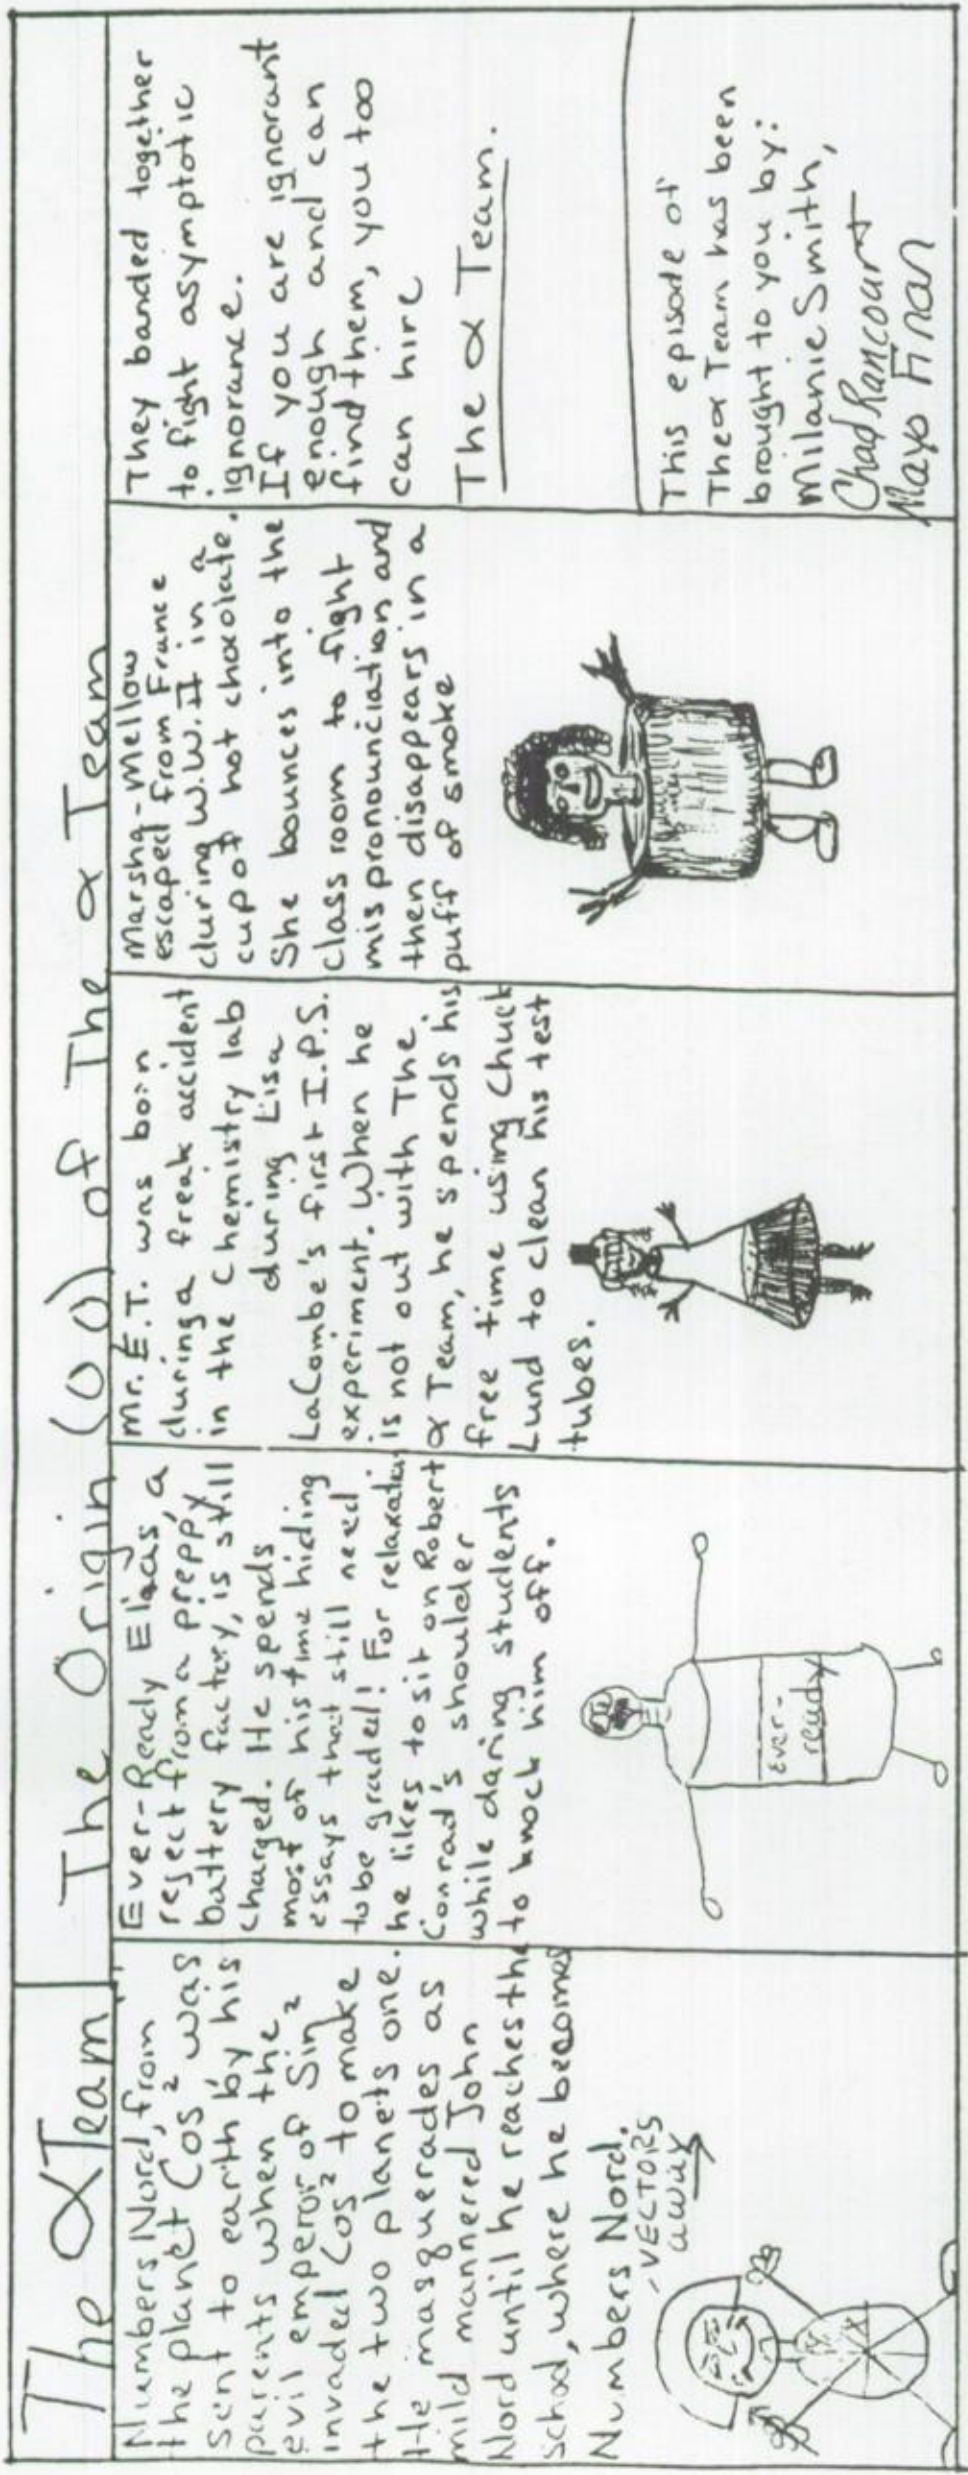 The α Team
The Origin (0,0) of The α Team
Numbers Nord, from
the planet Cos² was
sent to earth by his
parents when the
evil emperor of Sin²
invaded Cos² to make
the two planets one.
He masquerades as
mild mannered John
Nord until he reaches the
school, where he becomes
Numbers Nord.
-VECTORS
away
Ever-Ready Elias, a
reject from a preppy
battery factory, is still
charged. He spends
most of his time hiding
essays that still need
to be graded! For relaxation
he likes to sit on Robert
Conrad's shoulder
while daring students
to knock him off.
Ever-
ready
Mr. E.T. was born
during a freak accident
in the chemistry lab
during Lisa
LaCombe's first I.P.S.
experiment. When he
is not out with The
α Team, he spends his
free time using Chuck
Lund to clean his test
tubes.
Marsha-Mellow
escaped from France
during W.W.II in a
cup of hot chocolate.
She bounces into the
class room to fight
mispronounciation and
then disappears in a
puff of smoke
They banded together
to fight asymptotic
ignorance.
If you are ignorant
enough and can
find them, you too
can hire
The α Team.
This episode of
The α Team has been
brought to you by:
Milanie Smith,
Chad Rancourt
Mayo Finan